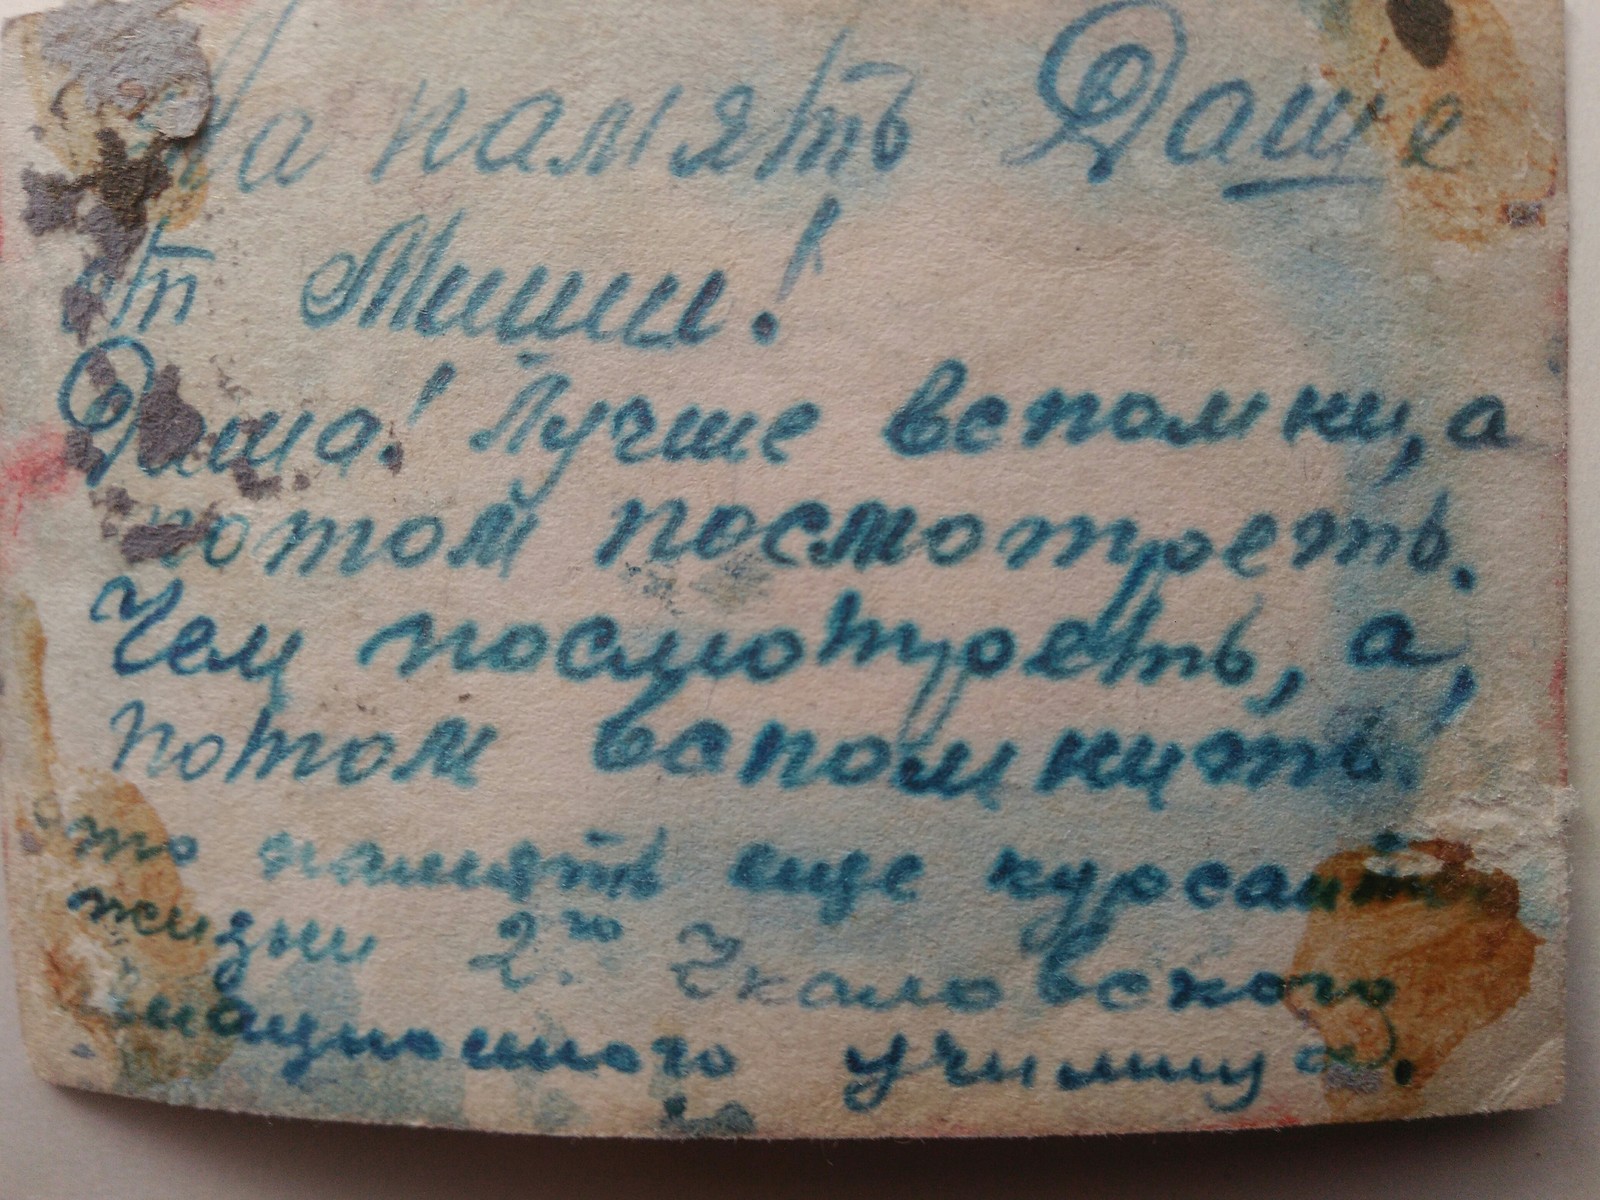 На память Даше
от Миши!
Даша! Лучше вспомни, а
потом посмотреть.
Чем посмотреть, а,
потом вспомнить.
это память еще курсантской
жизни 2го Чкаловского
авиационного училища.